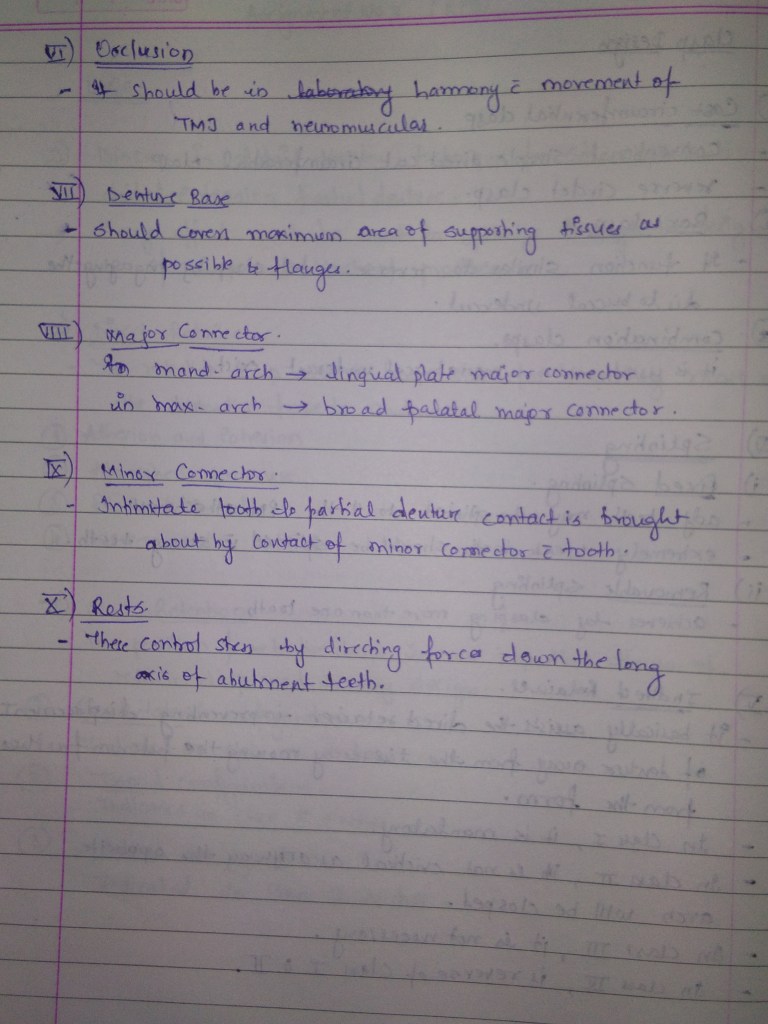 VI) Occlusion
- It should be in laboratory harmony c̄ movement of
TMJ and neuromuscular.
VII) Denture Base
- should cover maximum area of supporting tissues as
possible & flanges.
VIII) Major Connector.
In mand. arch → lingual plate major connector
in max. arch → broad palatal major connector.
IX) Minor Connector.
- Intimitate tooth to partial denture contact is brought
about by contact of minor connector c̄ tooth.
X) Rests.
- These control stress by directing force down the long
axis of abutment teeth.